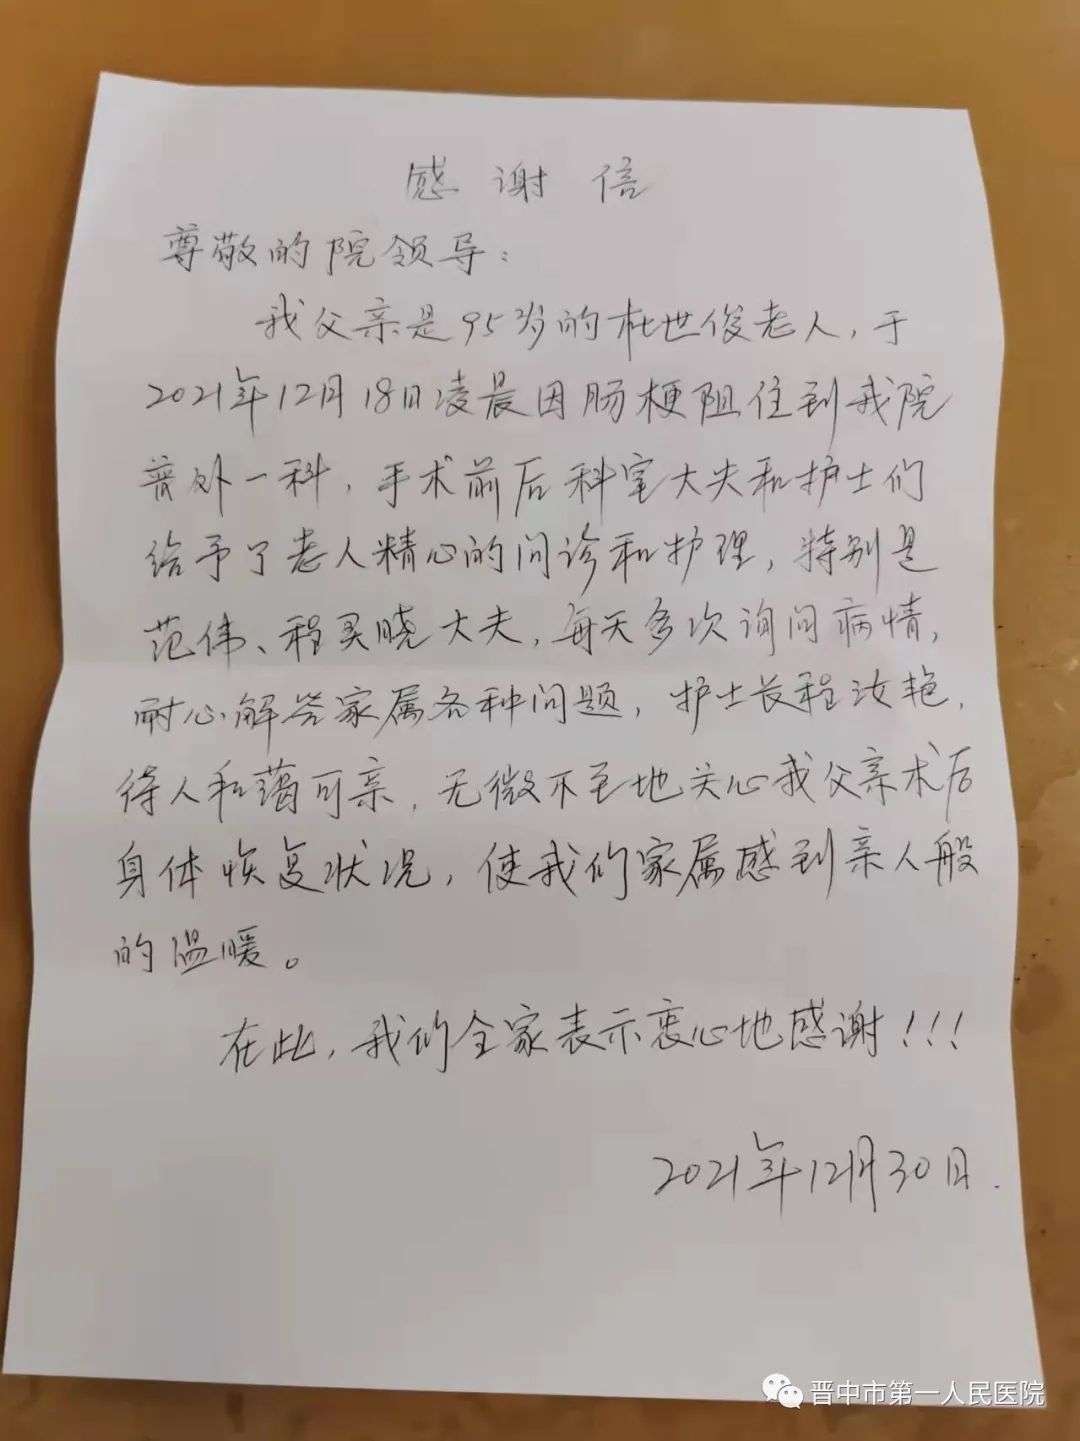 感谢信
尊敬的院领导：
我父亲是95岁的杜世俊老人，于
2021年12月18日凌晨因肠梗阻住到我院
普外一科，手术前后科室大夫和护士们
给予了老人精心的问诊和护理，特别是
范伟、程昊晓大夫，每天多次询问病情，
耐心解答家属各种问题，护士长程汝艳，
待人和蔼可亲，无微不至地关心我父亲术后
身体恢复状况，使我们家属感到亲人般
的温暖。
在此，我们全家表示衷心地感谢！！！
2021年12月30日.
晋中市第一人民医院